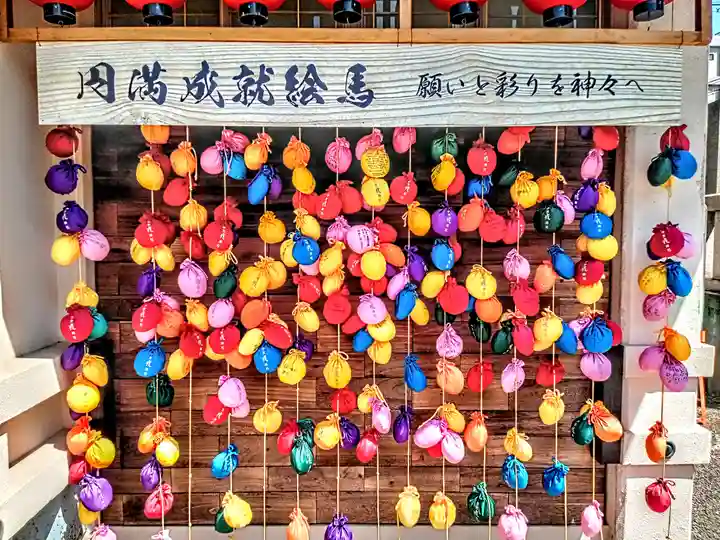 円満成就絵馬 願いと彩りを神々へ